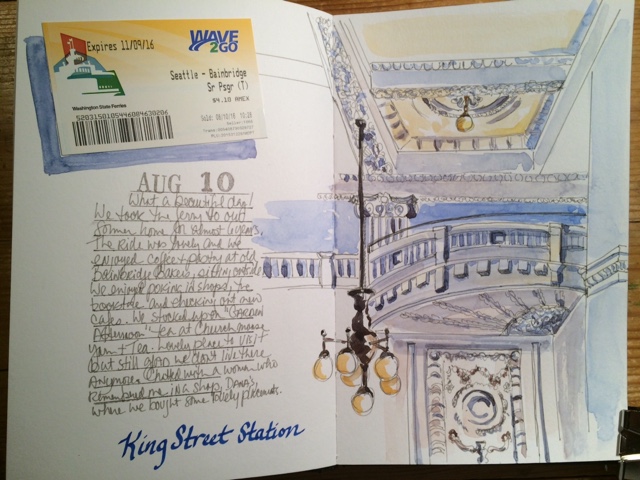 Expires 11/09/16
WAVE
2GO
Seattle - Bainbridge
Sr Psgr (T)
$4.10 AMEX
Washington State Ferries
AUG 10
What a beautiful day!
We took the ferry to our
former home for almost 6 years.
The ride was lovely and we
enjoyed coffee + pastry at old
Bainbridge Bakers, sitting outside
We enjoyed poking in shops, the
bookstore and checking out new
cafes. We stocked up on "Garden
Afternoon" tea at Churchmouse
Yarn + Tea. Lovely place to visit
but still glad we don't live there
anymore. Chatted with a woman who
remembered me in a shop, Dana's,
where we bought some lovely placemats.
King Street Station